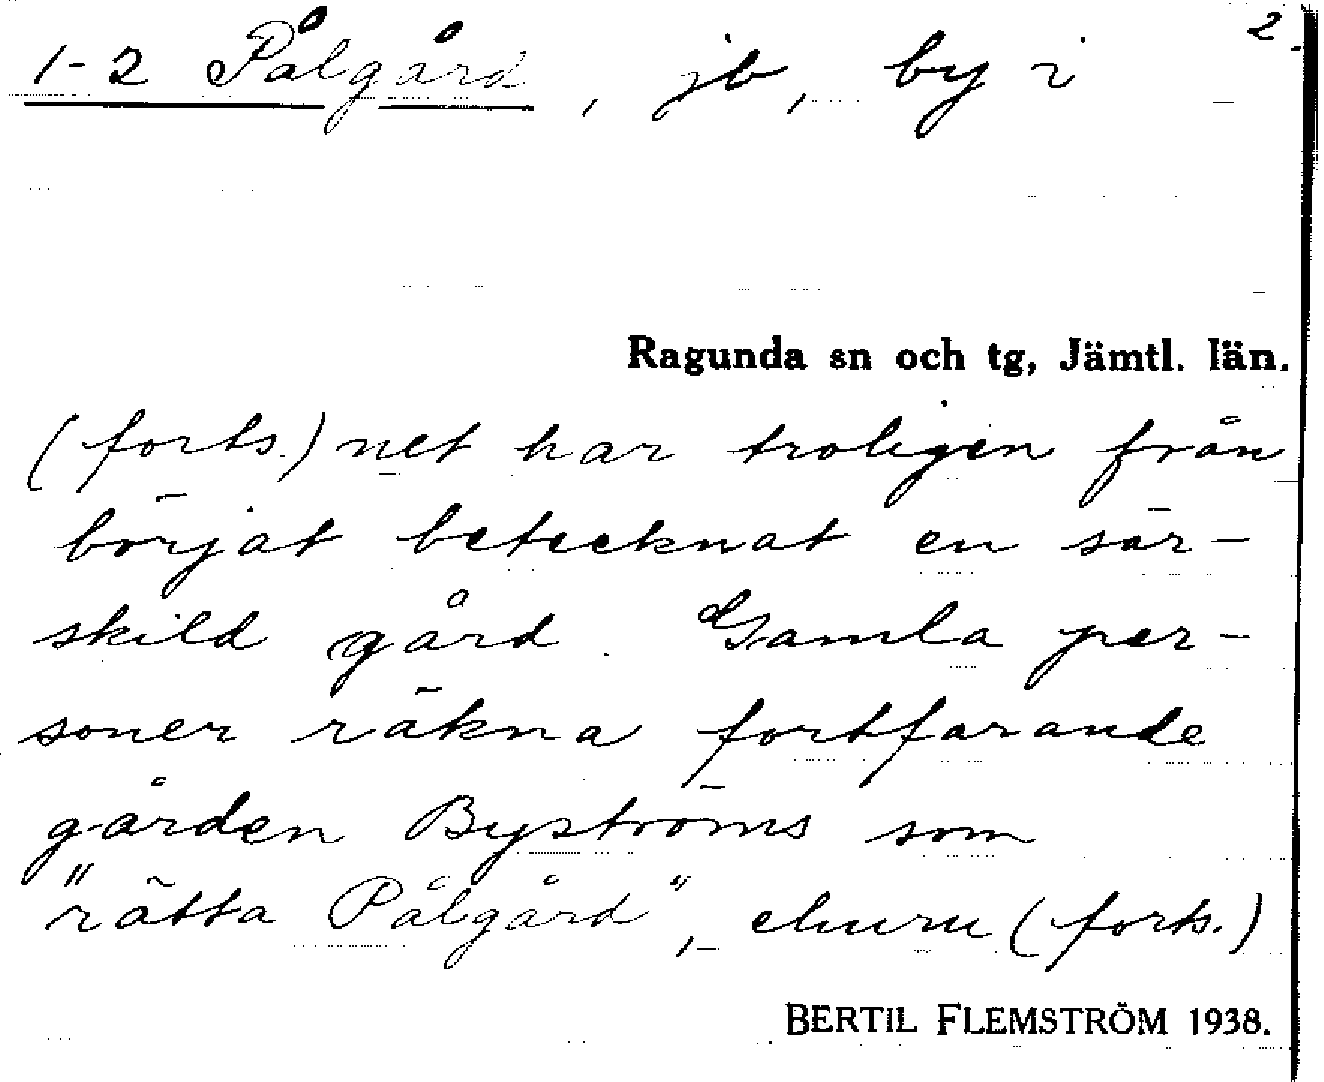 2.
1-2 Pålgård, jb, by i
Ragunda sn och tg, Jämtl. län.
(forts.) net har troligen från
börjat betecknat en sär-
skild gård. Gamla per-
soner räkna fortfarande
gården Byströms som
"rätta Pålgård", ehuru (forts.)
BERTIL FLEMSTRÖM 1938.